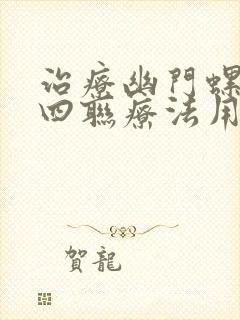 治療幽門螺
四聯療法用
賀龍